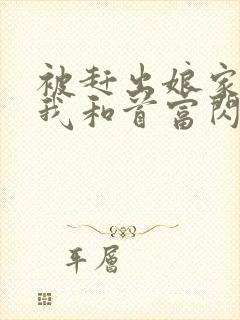 被赶出娘家
我和首富闪
平层